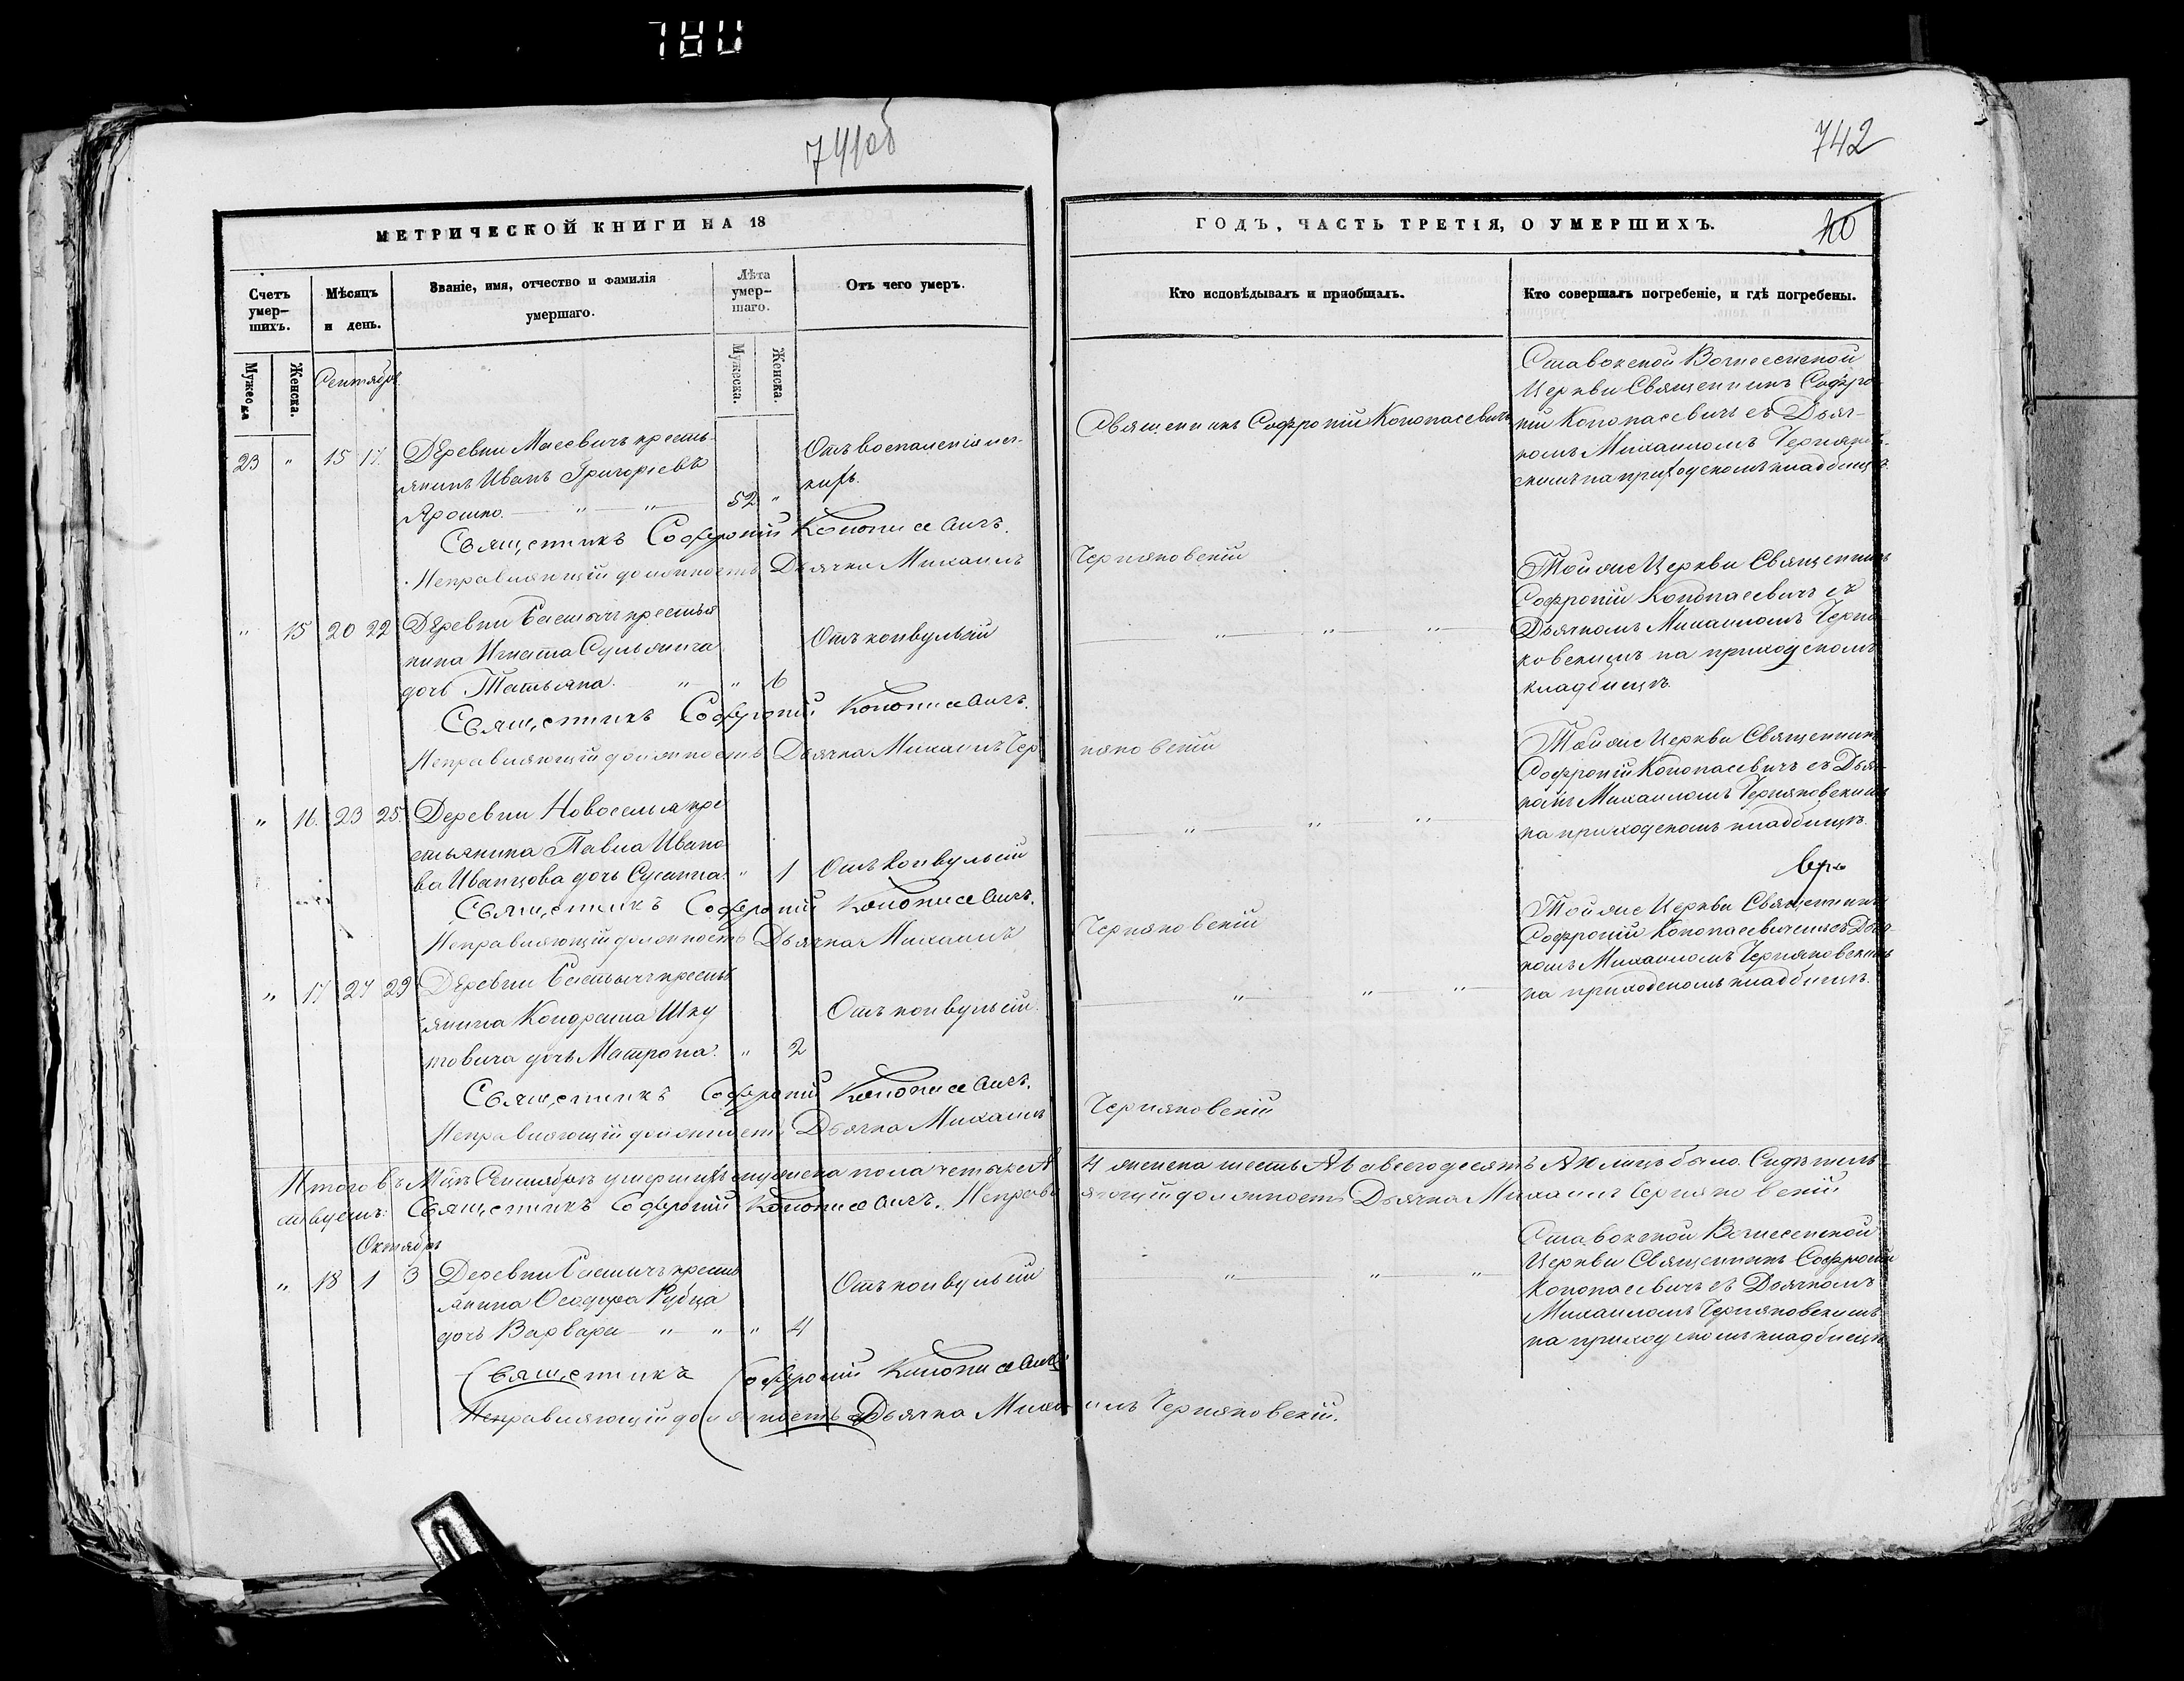 780
741об
742
МЕТРИЧЕСКОЙ КНИГИ НА 18
ГОДЪ, ЧАСТЬ ТРЕТІЯ, О УМЕРШИХЪ.
Счетъ умер-шихъ.
Мѣсяцъ и день.
Званіе, имя, отчество и фамилія умершаго.
Лѣта умер-шаго.
Отъ чего умеръ.
Кто исповѣдывалъ и приобщалъ.
Кто совершалъ погребеніе, и гдѣ погребены.
Мужеска
Женска.
Сентябрь
Мужеска.
Женска.
23 " 15 17.
Деревни Масевичъ кресть-
янинъ Иванъ Григоріевъ
Ярошко. " " 52 "
Отъ воспаленія лег-
кихъ.
Священникъ Софроній Конопасевичъ
Ставокской Вознесенской
Церкви Священникъ Софро
ній Конопасевичъ съ Дьяч-
комъ Михаиломъ Черняков-
скимъ на приходскомъ кладбищѣ.
Священникъ Софроній Конопасевичъ.
Исправляющій должность Дьячка Михаилъ Черняковскій
" 15 20 22
Деревни крестья
нина Игната
дочь Татьяна. " " 6
Отъ конвульсій
" " "
Той же Церкви Священникъ
Софроній Конопасевичъ съ
Дьячкомъ Михаиломъ Черня
ковскимъ на приходскомъ
кладбищѣ.
Священникъ Софроній Конопасевичъ.
Исправляющій должность Дьячка Михаилъ Черняковскій
" 16. 23 25
Деревни Новоселья кре
стьянина Павла Ивано
ва Иванцова дочь Сусанна. " 1
Отъ Конвульсій
" " "
Той же Церкви Священникъ
Софроній Конопасевичъ съ Дьяч-
комъ Михаиломъ Черняковскимъ
на приходскомъ кладбищѣ.
Священникъ Софроній Конопасевичъ.
Исправляющій должность Дьячка Михаилъ Черняковскій
" 17 27 29
Деревни кресть
янина Кондрата Шку
товича дочь Матрона. " 2
Отъ конвульсій.
" " "
Той же Церкви Священникъ
Софроній Конопасевичъ съ Дьяч-
комъ Михаиломъ Черняковскимъ
на приходскомъ кладбищѣ.
Священникъ Софроній Конопасевичъ.
Исправляющій должность Дьячка Михаилъ Черняковскій
Итого въ М-цѣ Сентябрѣ умершихъ мужеска пола четыре 4 женска шесть а всего десять лицъ было. Свидѣтель-
ствуемъ: Священникъ Софроній Конопасевичъ. Исправляющій должность Дьячка Михаилъ Черняковскій
Октябрь
" 18 1 3
Деревни кресть
янина Ѳеодора Рубца
дочь Варвара " " " 4
Отъ конвульсій
" " "
Ставокской Вознесенской
Церкви Священникъ Софроній
Конопасевичъ съ Дьячкомъ
Михаиломъ Черняковскимъ
на приходскомъ кладбищѣ
Священникъ Софроній Конопасевичъ
Исправляющій должность Дьячка Михаилъ Черняковскій.